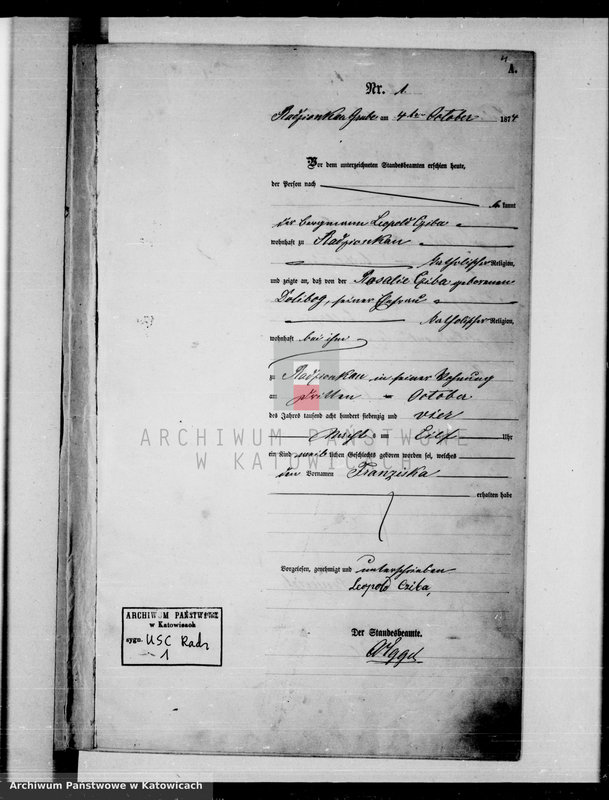 A.
Nr. 1
Radzionkau Grube am 4ten October 1874
Vor dem unterzeichneten Standesbeamten erschien heute,
der Person nach
kannt
der Bergmann Leopold Cziba
wohnhaft zu Radzionkau
katholischer Religion,
und zeigte an, daß von der Rosalie Cziba geborenen
seiner Ehefrau
katholischer Religion,
wohnhaft bei ihm
zu Radzionkau in seiner Wohnung
am dritten October
des Jahres tausend acht hundert siebenzig und vier
Nachts um Uhr
ein Kind weiblichen Geschlechts geboren worden sei, welches
den Vornamen Franziska
erhalten habe
Vorgelesen, genehmigt und unterschrieben
Leopold Cziba
Der Standesbeamte.
ARCHIWUM PAŃSTWOWE
W KATOWICACH
ARCHIWUM PAŃSTWOWE
w Katowicach
sygn. USC Radz
1
Archiwum Państwowe w Katowicach